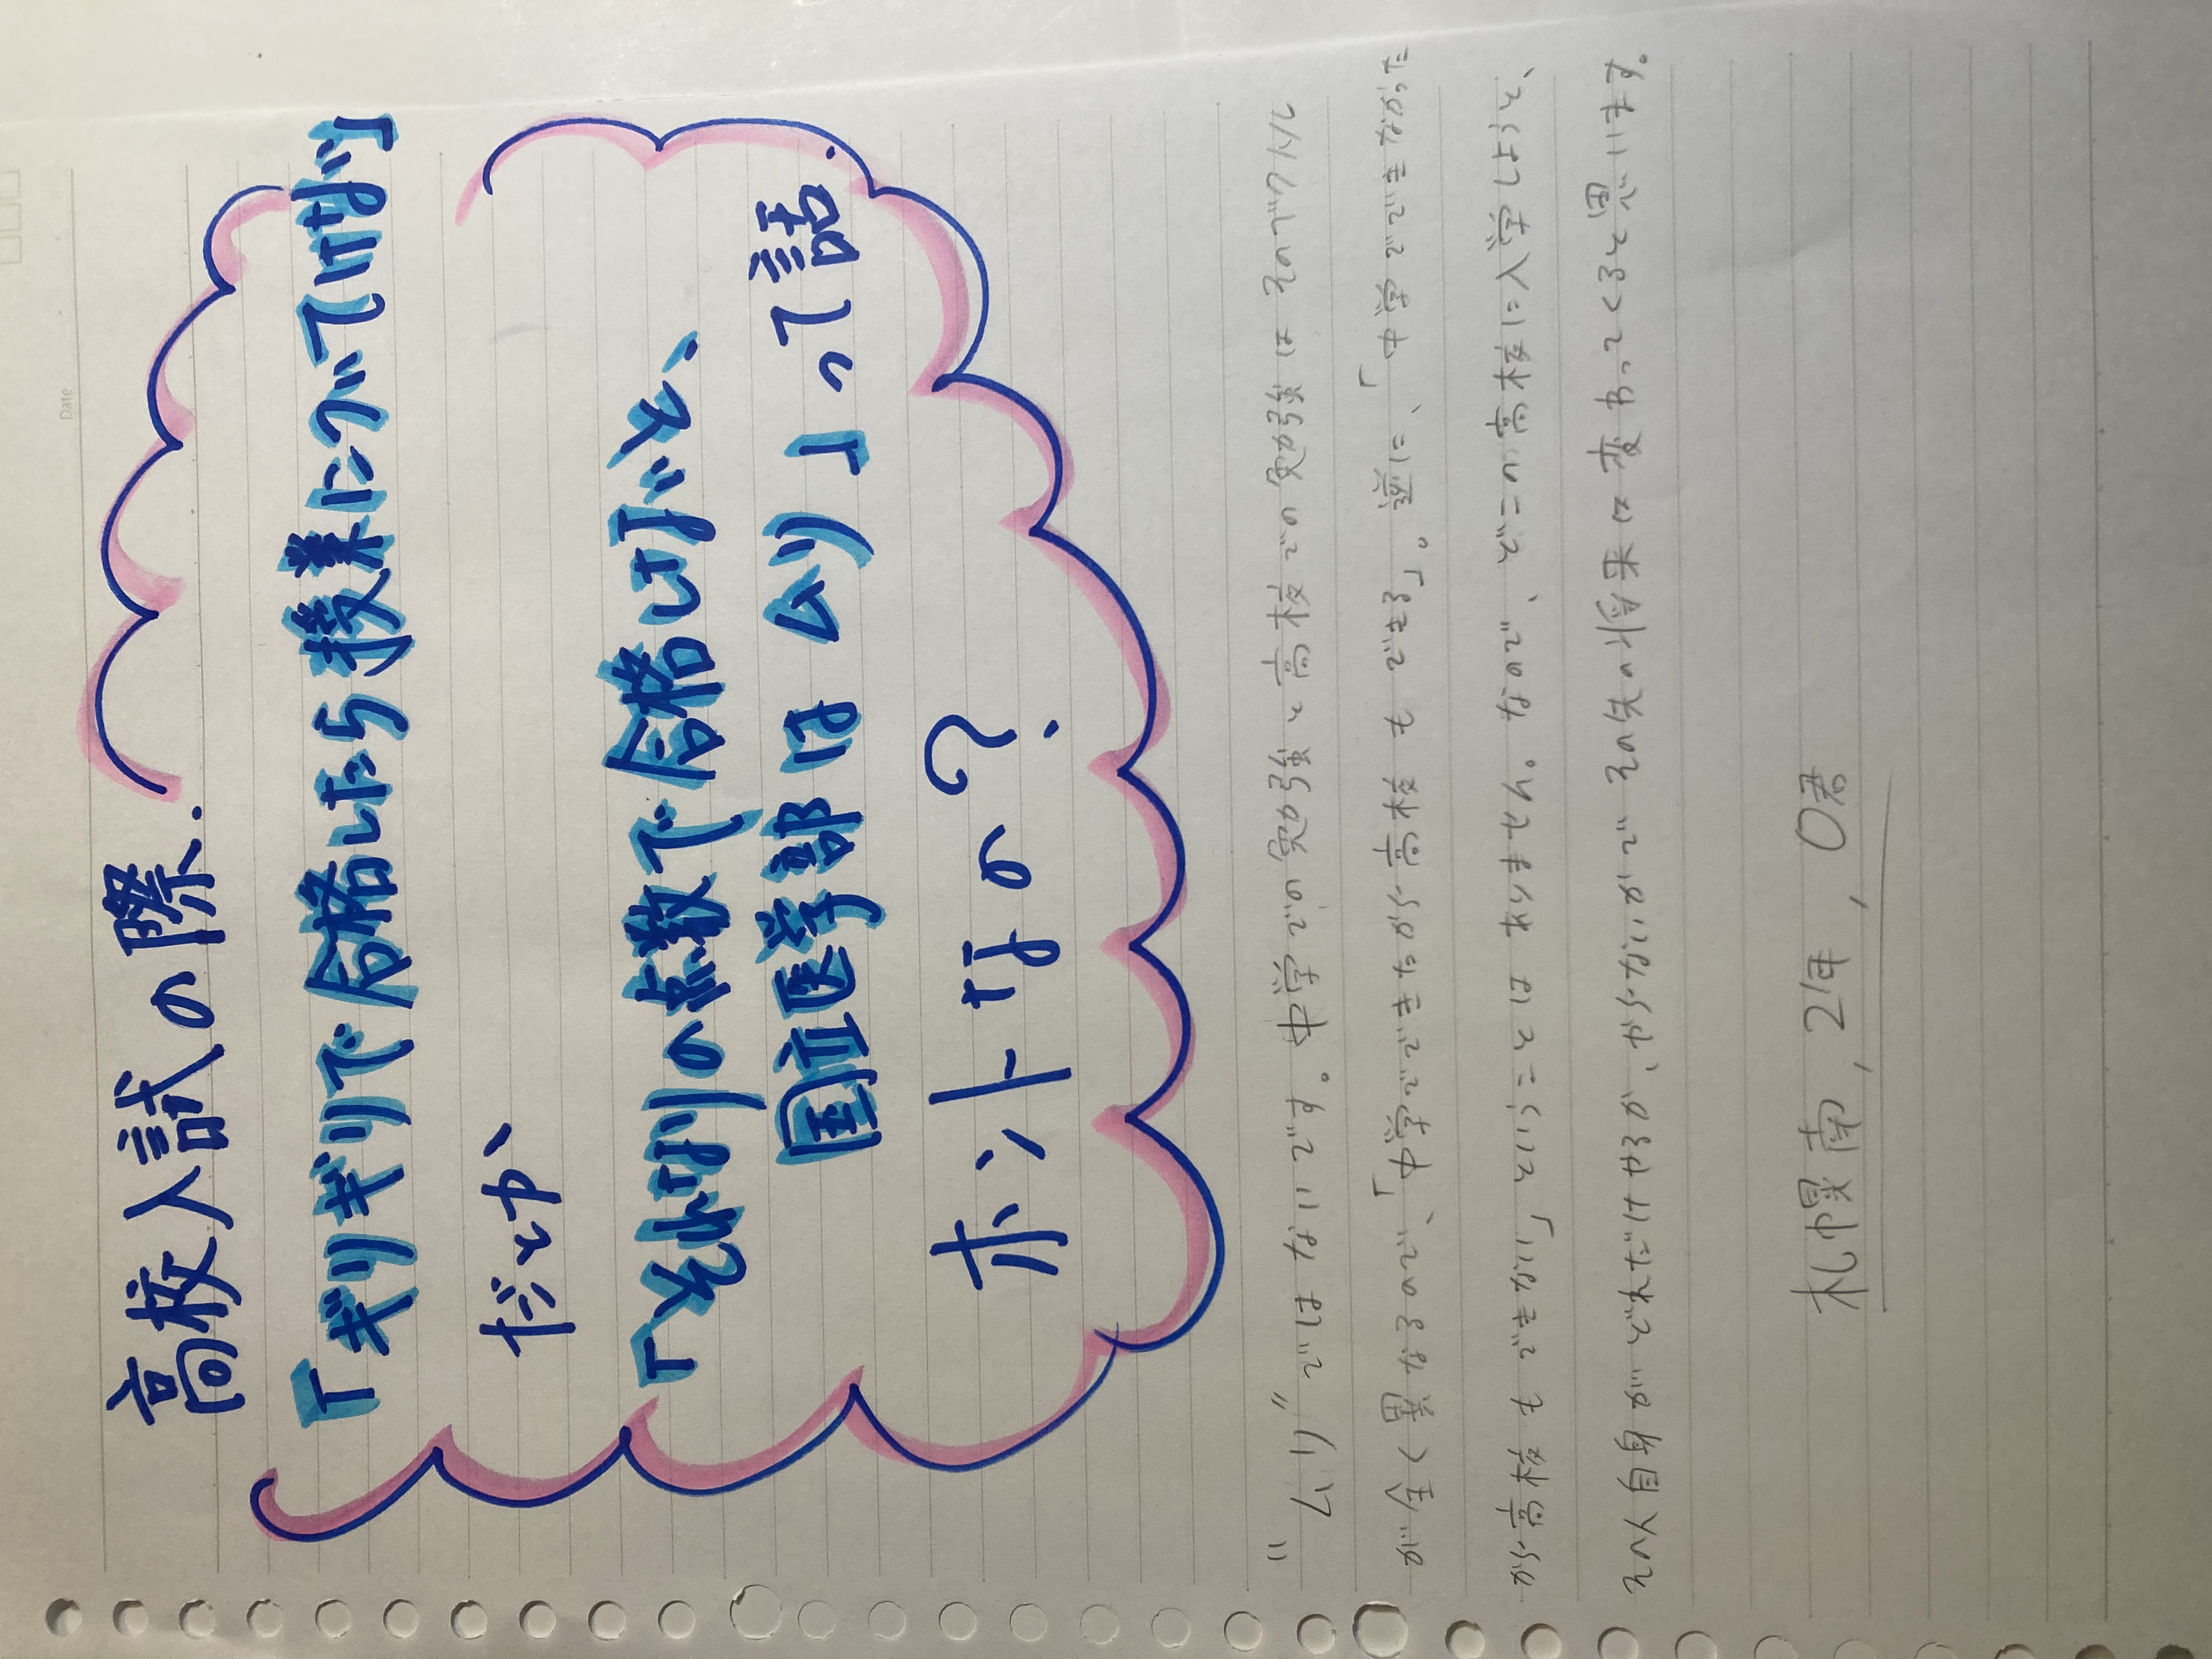 Date
高校入試の際.
「ギリギリで合格したら授業についてけない」
だとか、
「それなりの点数で合格しないと、
国立医学部はムリ」って話.
ホントなの?
"ムリ"ではないです。中学での勉強と高校での勉強はそのベクトル
が全く異なるので、「中学でできたから高校でもできる」。逆に、「中学でできなかった
から高校でもできない」ということはありません。なので、どこの高校に入学したって、
その人自身がどれだけやるか、やらないかで、その先の将来は変わってくると思います。
札幌南, 2年, O君